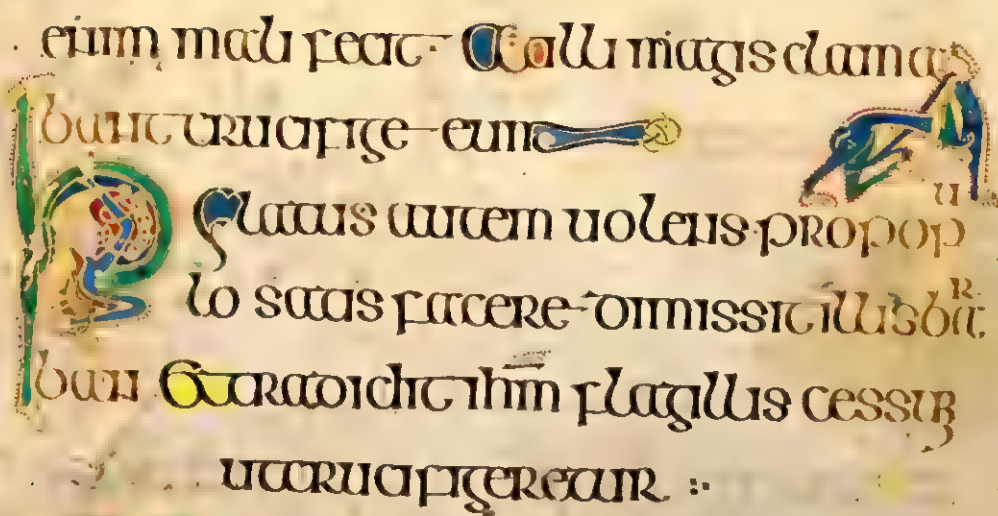 enim mali fecit · At illi magis clama
bant crucifige eum
Pilatus autem uolens propopu
lo satis facere dimissit illis bar
ban Et tradidit ihm̄ flagillis cessum
ut crucifigeretur